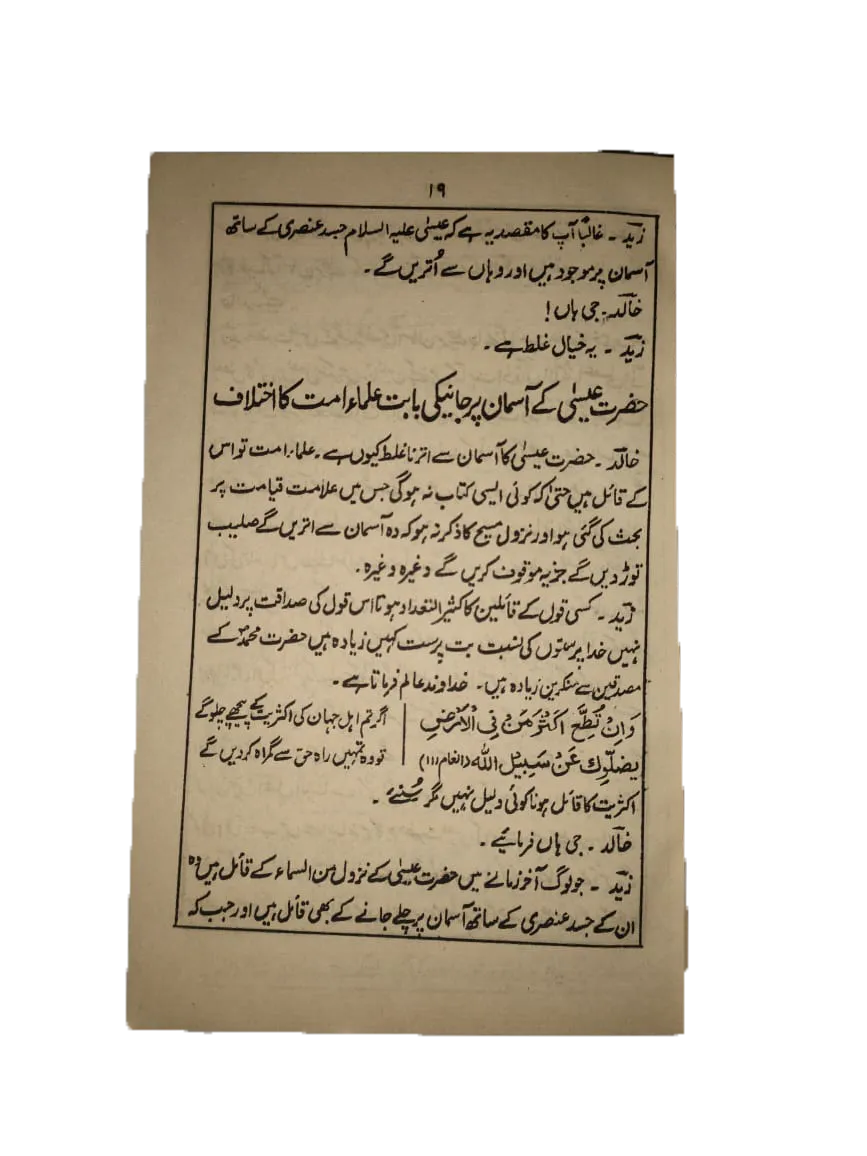 ۱۹
زید ۔ غالباً آپ کا مقصد یہ ہے کہ عیسیٰ علیہ السلام جسد عنصری کے ساتھ
آسمان پر موجود ہیں اور وہاں سے اُتریں گے ۔
خالد ۔ جی ہاں !
زید ۔ یہ خیال غلط ہے ۔
حضرت عیسیٰ کے آسمان پر جانیکی بابت علماء امت کا اختلاف
خالد ۔ حضرت عیسیٰ کا آسمان سے اترنا غلط کیوں ہے ۔ علماء امت تو اس
کے قائل ہیں حتیٰ کہ کوئی ایسی کتاب نہ ہوگی جس میں علامت قیامت پر
بحث کی گئی ہو اور نزول مسیح کا ذکر نہ ہو کہ وہ آسمان سے اتریں گے صلیب
توڑ دیں گے جزیہ موقوف کریں گے وغیرہ وغیرہ ۔
زید ۔ کسی قول کے قائلین کا کثیر التعداد ہونا اس قول کی صداقت پر دلیل
نہیں خدا پرستوں کی نسبت بت پرست کہیں زیادہ ہیں حضرت محمدؐ کے
مصدقین سے منکرین زیادہ ہیں ۔ خداوند عالم فرماتا ہے ۔
وَاِنْ تُطِعْ اَکْثَرَ مَنْ فِی الْاَرْضِ | اگر تم اہل جہان کی اکثریت کے پیچھے چلو گے
یُضِلُّوْكَ عَنْ سَبِیْلِ اللہ (انعام ۱۱۱) | تو وہ تمہیں راہ حق سے گمراہ کر دیں گے
اکثریت کا قائل ہونا کوئی دلیل نہیں مگر سُنئے ۔
خالد ۔ جی ہاں فرمائیے ۔
زید ۔ جو لوگ آخر زمانے میں حضرت عیسیٰ کے نزول من السماء کے قائل ہیں وہ
ان کے جسد عنصری کے ساتھ آسمان پر چلے جانے کے بھی قائل ہیں اور جب کہ